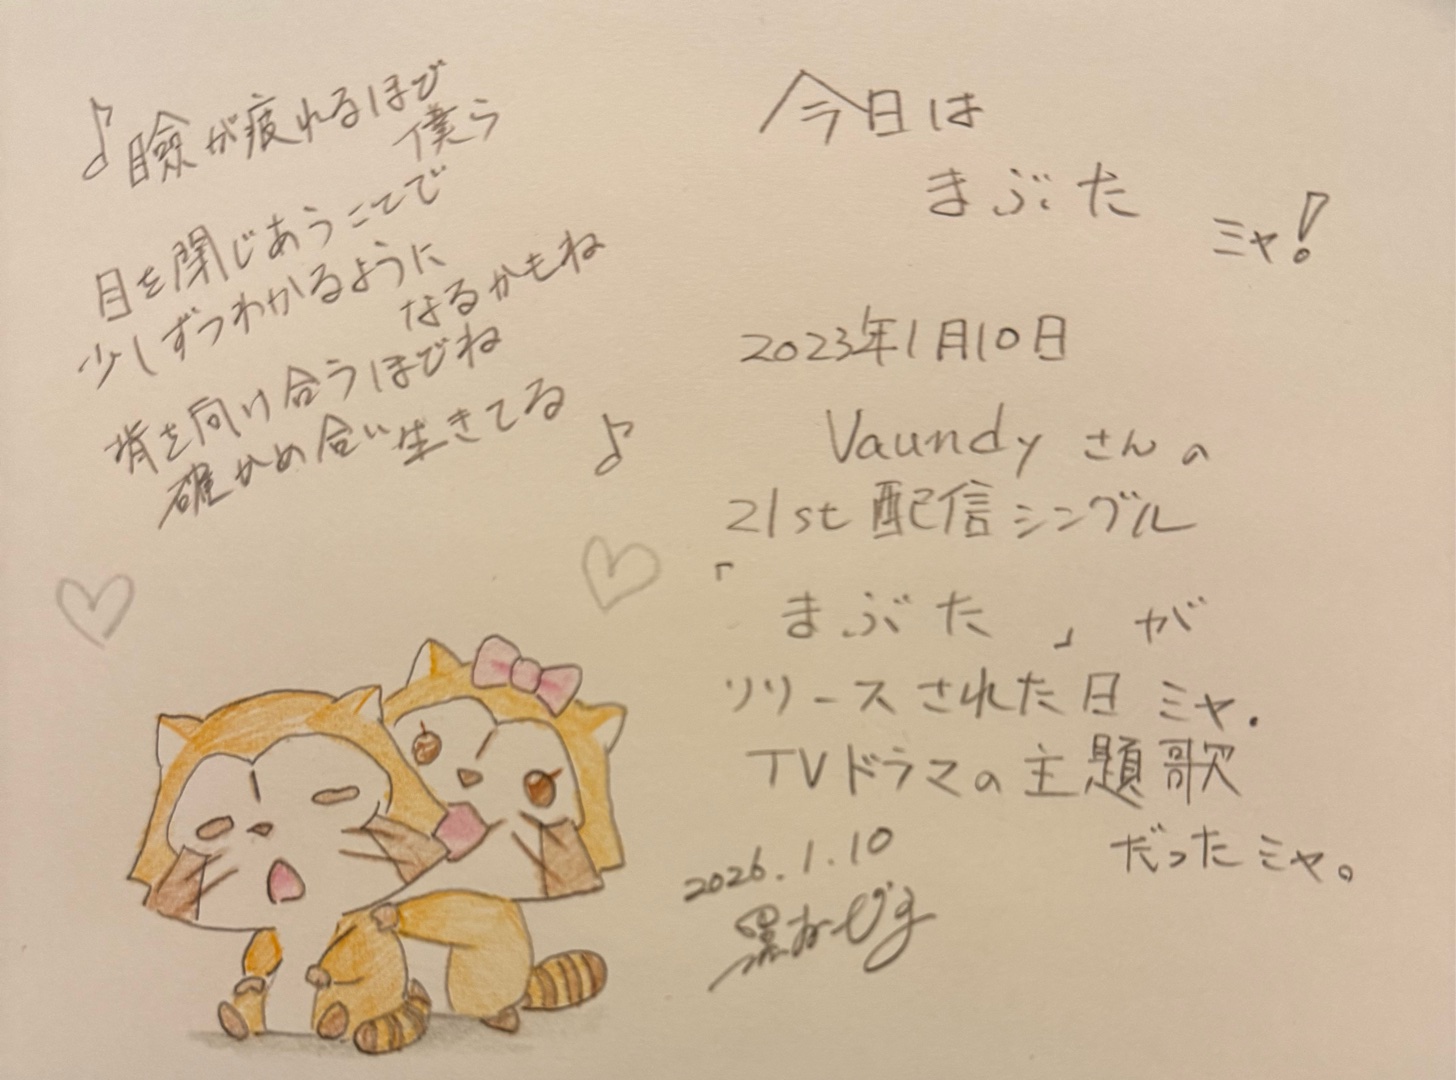 ♪瞼が疲れるほど
僕ら
目を閉じあうことで
少しずつわかるように
なるかもね
背を向け合うほどね
確かめ合い生きてる
♪
今日は
まぶた
ミャ!
2023年1月10日
Vaundyさんの
21st配信シングル
「
まぶた」が
リリースされた日ミャ.
TVドラマの主題歌
だったミャ。
2026.1.10